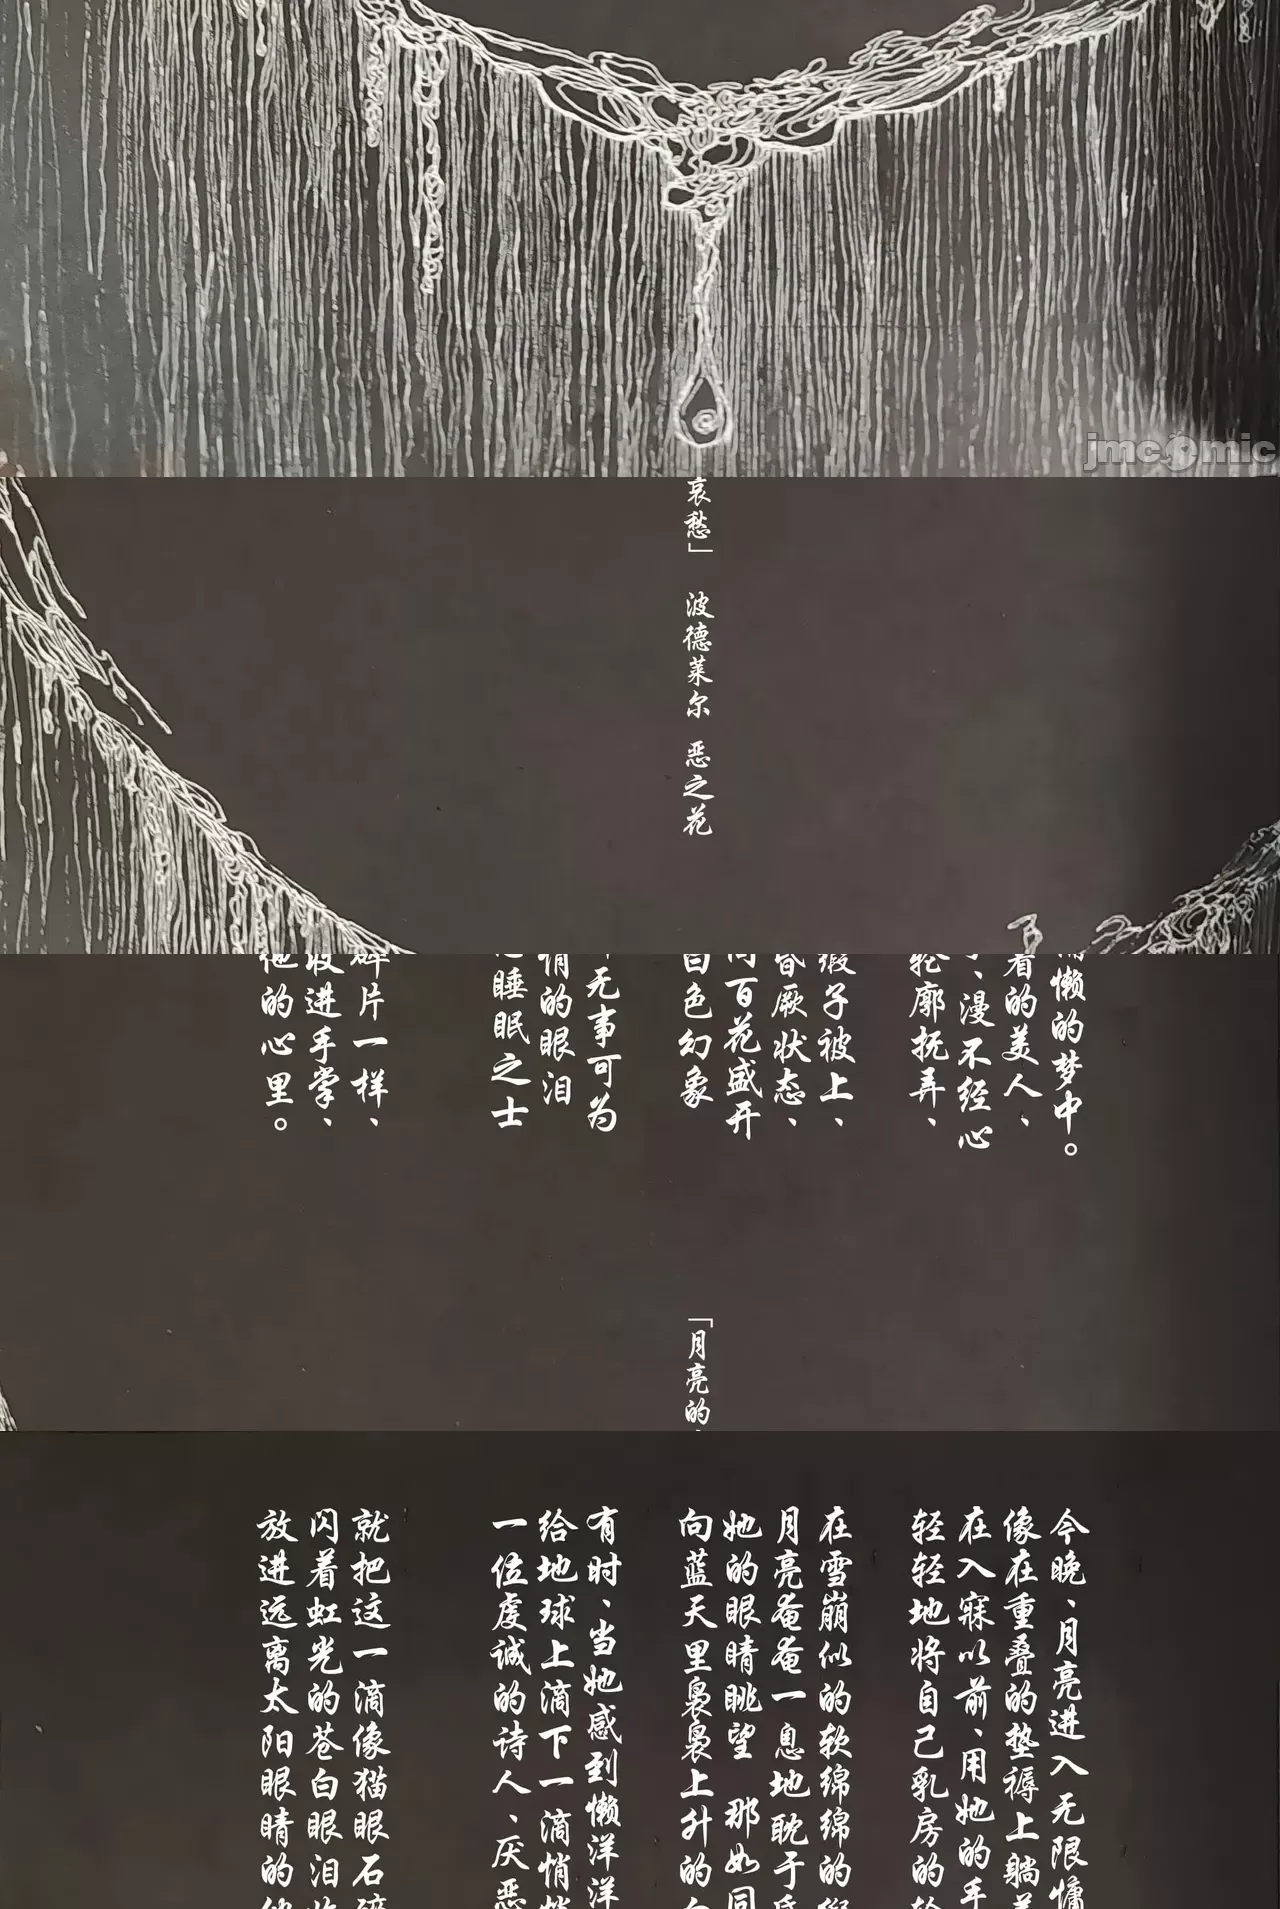 jmcomic
哀愁」 波德莱尔 恶之花
懒的梦中。
着的美人、
、漫不经心
轮廓抚弄、
缎子被上、
昏厥状态、
同百花盛开
白色幻象
无事可为
悄的眼泪
睡眠之士
碎片一样、
收进手掌、
他的心里。
「月亮的
今晚、月亮进入无限慵
像在重叠的垫褥上躺着
在入寐以前、用她的手
轻轻地将自己乳房的轮
在雪崩似的软绵绵的缎
月亮奄奄一息地耽于昏
她的眼睛眺望 那如同
向蓝天里袅袅上升的白
有时、当她感到懒洋洋
给地球上滴下一滴悄悄
一位虔诚的诗人、厌恶
就把这一滴像猫眼石碎
闪着虹光的苍白眼泪收
放进远离太阳眼睛的他